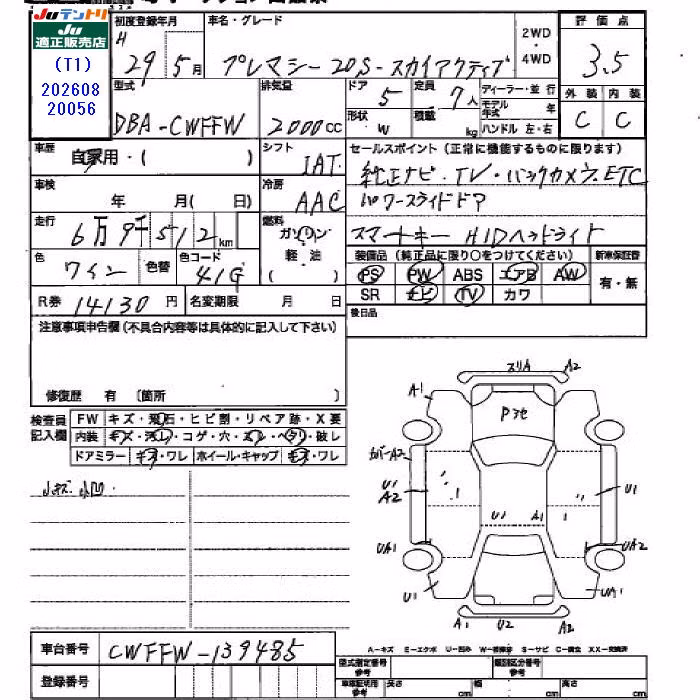 JU テントリ
JU
適正販売店
(T1)
202608
20056
初度登録年月
H
29年 5月
車名・グレード
プレマシー 20S-スカイアクティブ
2WD
4WD
評価点
3.5
型式
DBA-CWFFW
排気量
2000cc
ドア
5
形状
W
定員
7人
積載
kg
ディーラー・並行
モデル年式 年
ハンドル 左・右
外装 内装
C C
車歴
自家用・( )
シフト
IAT
セールスポイント (正常に機能するものに限ります)
純正ナビ・TV・バックカメラ・ETC
パワースライドドア
スマートキー HIDヘッドライト
車検
年 月( 日)
冷房
AAC
走行
6万9千512km
燃料
ガソリン
軽・油
( )
色
ワイン
色替
色コード
41G
装備品 (純正品に限り○をつけてください)
新車保証書
PS PW ABS エアB AW
有・無
SR ナビ TV カワ
R券 14130円
名変期限 月 日
後日品
注意事項申告欄(不具合内容等は具体的に記入して下さい)
修復歴 有 〔箇所 〕
検査員
記入欄
FW キズ・飛石・ヒビ割・リペア跡・X要
内装 キズ・汚レ・コゲ・穴・スレ・ヘタリ・破レ
ドアミラー キズ・ワレ ホイール・キャップ キズ・ワレ
小キズ 小凹
スリA A2
A1
Pヨゴレ
カバーA2
U1
A2
U1 A1
U1
UA1
UA2
U1
UA1
A1 U2 A2
車台番号 CWFFW-139485
登録番号
A-キズ E-エクボ U-凹み W-補修跡 S-サビ C-腐食 XX-交換済
型式指定番号
参考
類別区分番号
参考
車庫証明用
参考
長さ cm
幅 cm
高さ cm